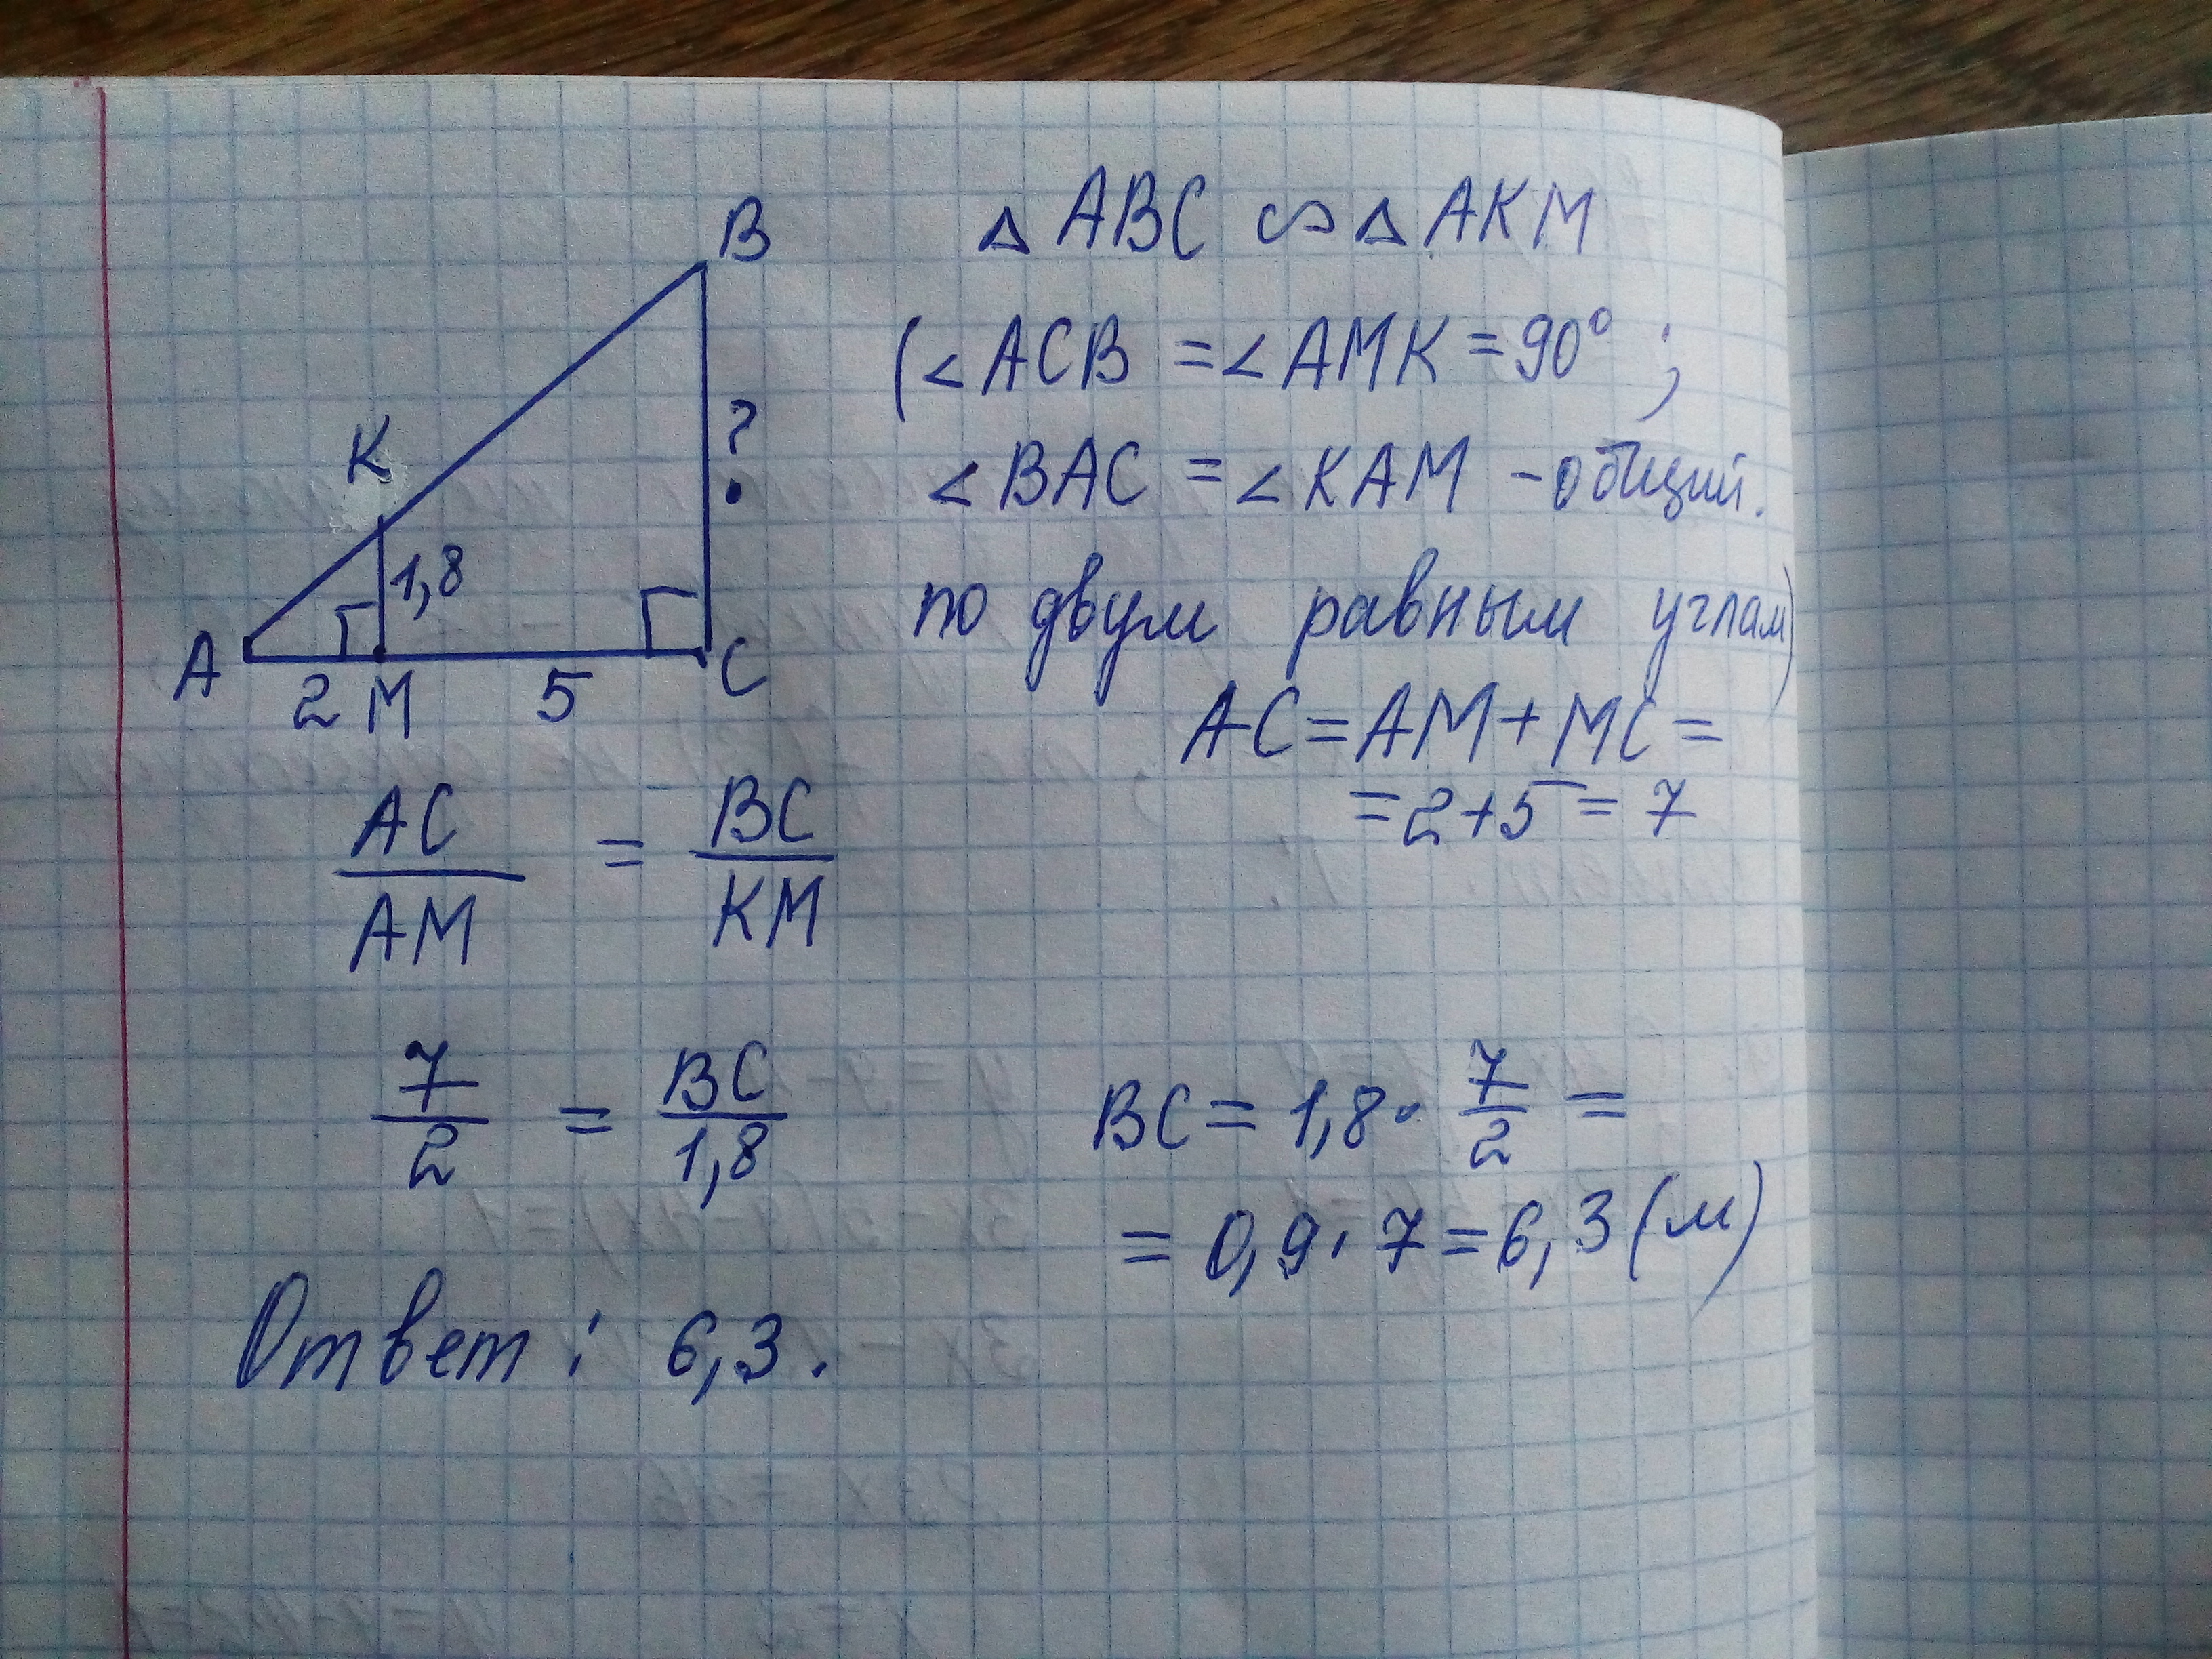 B
K
1,8
?
A
2 M 5 C
△ ABC ∽ △ AKM
(∠ACB = ∠AMK = 90° ;
∠BAC = ∠KAM - общий.
по двум равным углам)
AC = AM + MC =
= 2+5 = 7
AC/AM = BC/KM
7/2 = BC/1,8
BC = 1,8 · 7/2 =
= 0,9 · 7 = 6,3 (м)
Ответ : 6,3.